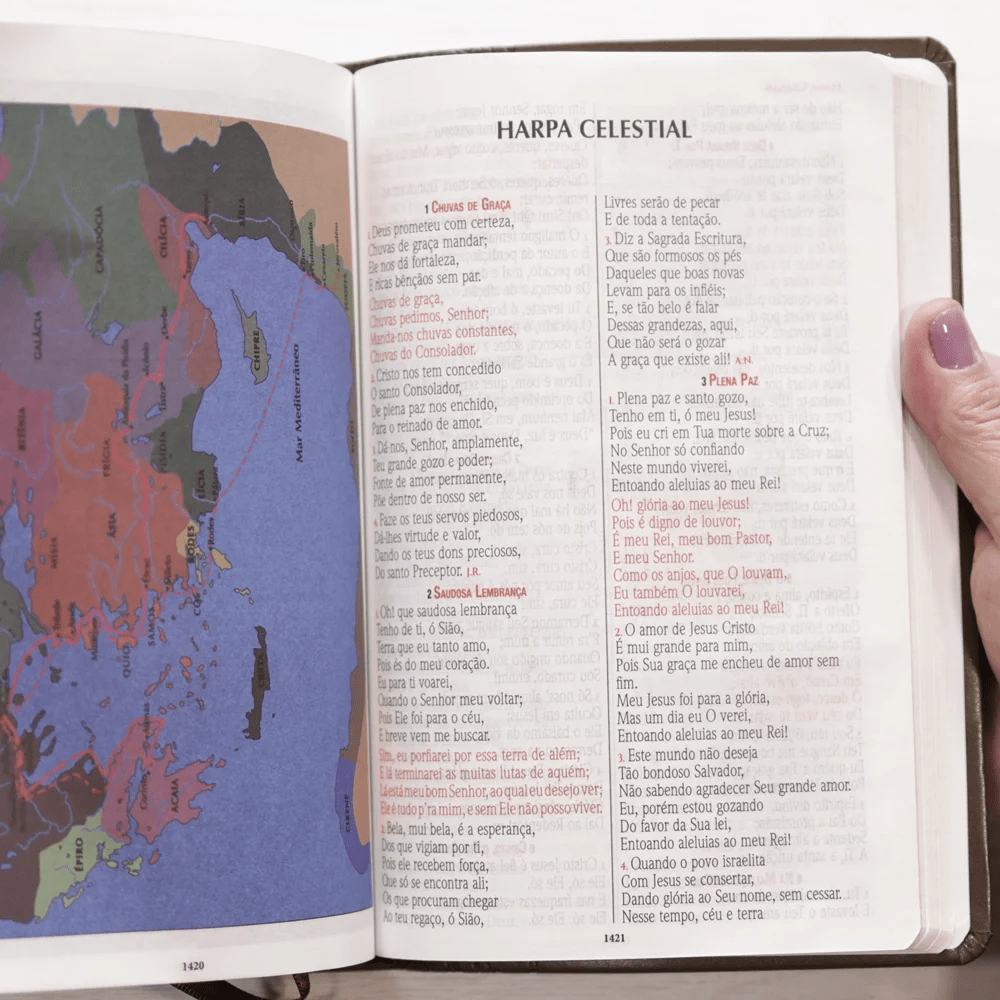 CAPADÓCIA
CILÍCIA
SÍRIA
GALÁCIA
Derbe
CHIPRE
Mar Mediterrâneo
BITÍNIA
FRÍGIA
PISÍDIA
LÍCIA
ÁSIA
MÍSIA
RODES
Rodes
SAMOS
CRETA
Atenas
Corinto
ACAIA
ÉPIRO
CIRENE
1420
HARPA CELESTIAL
1 CHUVAS DE GRAÇA
1. Deus prometeu com certeza,
Chuvas de graça mandar;
Ele nos dá fortaleza,
E ricas bênçãos sem par.
Chuvas de graça,
Chuvas pedimos, Senhor;
Manda-nos chuvas constantes,
Chuvas do Consolador.
2. Cristo nos tem concedido
O santo Consolador,
De plena paz nos enchido,
Para o reinado de amor.
3. Dá-nos, Senhor, amplamente,
Teu grande gozo e poder;
Fonte de amor permanente,
Põe dentro de nosso ser.
4. Faze os teus servos piedosos,
Dá-lhes virtude e valor,
Dando os teus dons preciosos,
Do santo Preceptor. J.R.
2 SAUDOSA LEMBRANÇA
1. Oh! que saudosa lembrança
Tenho de ti, ó Sião,
Terra que eu tanto amo,
Pois és do meu coração.
Eu para ti voarei,
Quando o Senhor meu voltar;
Pois Ele foi para o céu,
E breve vem me buscar.
Sim, eu porfiarei por essa terra de além;
E lá terminarei as muitas lutas de aquém;
Lá está meu bom Senhor, ao qual eu desejo ver;
Ele é tudo p'ra mim, e sem Ele não posso viver.
2. Bela, mui bela, é a esperança,
Dos que vigiam por ti,
Pois ele recebem força,
Que só se encontra ali;
Os que procuram chegar
Ao teu regaço, ó Sião,
Livres serão de pecar
E de toda a tentação.
3. Diz a Sagrada Escritura,
Que são formosos os pés
Daqueles que boas novas
Levam para os infiéis;
E, se tão belo é falar
Dessas grandezas, aqui,
Que não será o gozar
A graça que existe ali! A.N.
3 PLENA PAZ
1. Plena paz e santo gozo,
Tenho em ti, ó meu Jesus!
Pois eu cri em Tua morte sobre a Cruz;
No Senhor só confiando
Neste mundo viverei,
Entoando aleluias ao meu Rei!
Oh! glória ao meu Jesus!
Pois é digno de louvor;
É meu Rei, meu bom Pastor,
E meu Senhor.
Como os anjos, que O louvam,
Eu também O louvarei,
Entoando aleluias ao meu Rei!
2. O amor de Jesus Cristo
É mui grande para mim,
Pois Sua graça me encheu de amor sem
fim.
Meu Jesus foi para a glória,
Mas um dia eu O verei,
Entoando aleluias ao meu Rei!
3. Este mundo não deseja
Tão bondoso Salvador,
Não sabendo agradecer Seu grande amor.
Eu, porém estou gozando
Do favor da Sua lei,
Entoando aleluias ao meu Rei!
4. Quando o povo israelita
Com Jesus se consertar,
Dando glória ao Seu nome, sem cessar.
Nesse tempo, céu e terra
1421